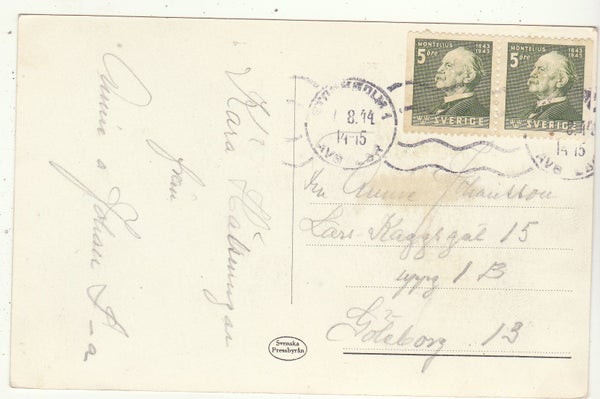 Kära Hälsningar
från
Annie o Johan S-a
MONTELIUS 1843 1943
5 öre
SVERIGE
MONTELIUS 1843 1943
5 öre
SVERIGE
STOCKHOLM 1
1.8.44
14-15
AVG
14-15
AVG
Fru Anna Johansson
Lars Kaggsgat 15
uppg 1 B
Göteborg 13
Svenska
Pressbyrån